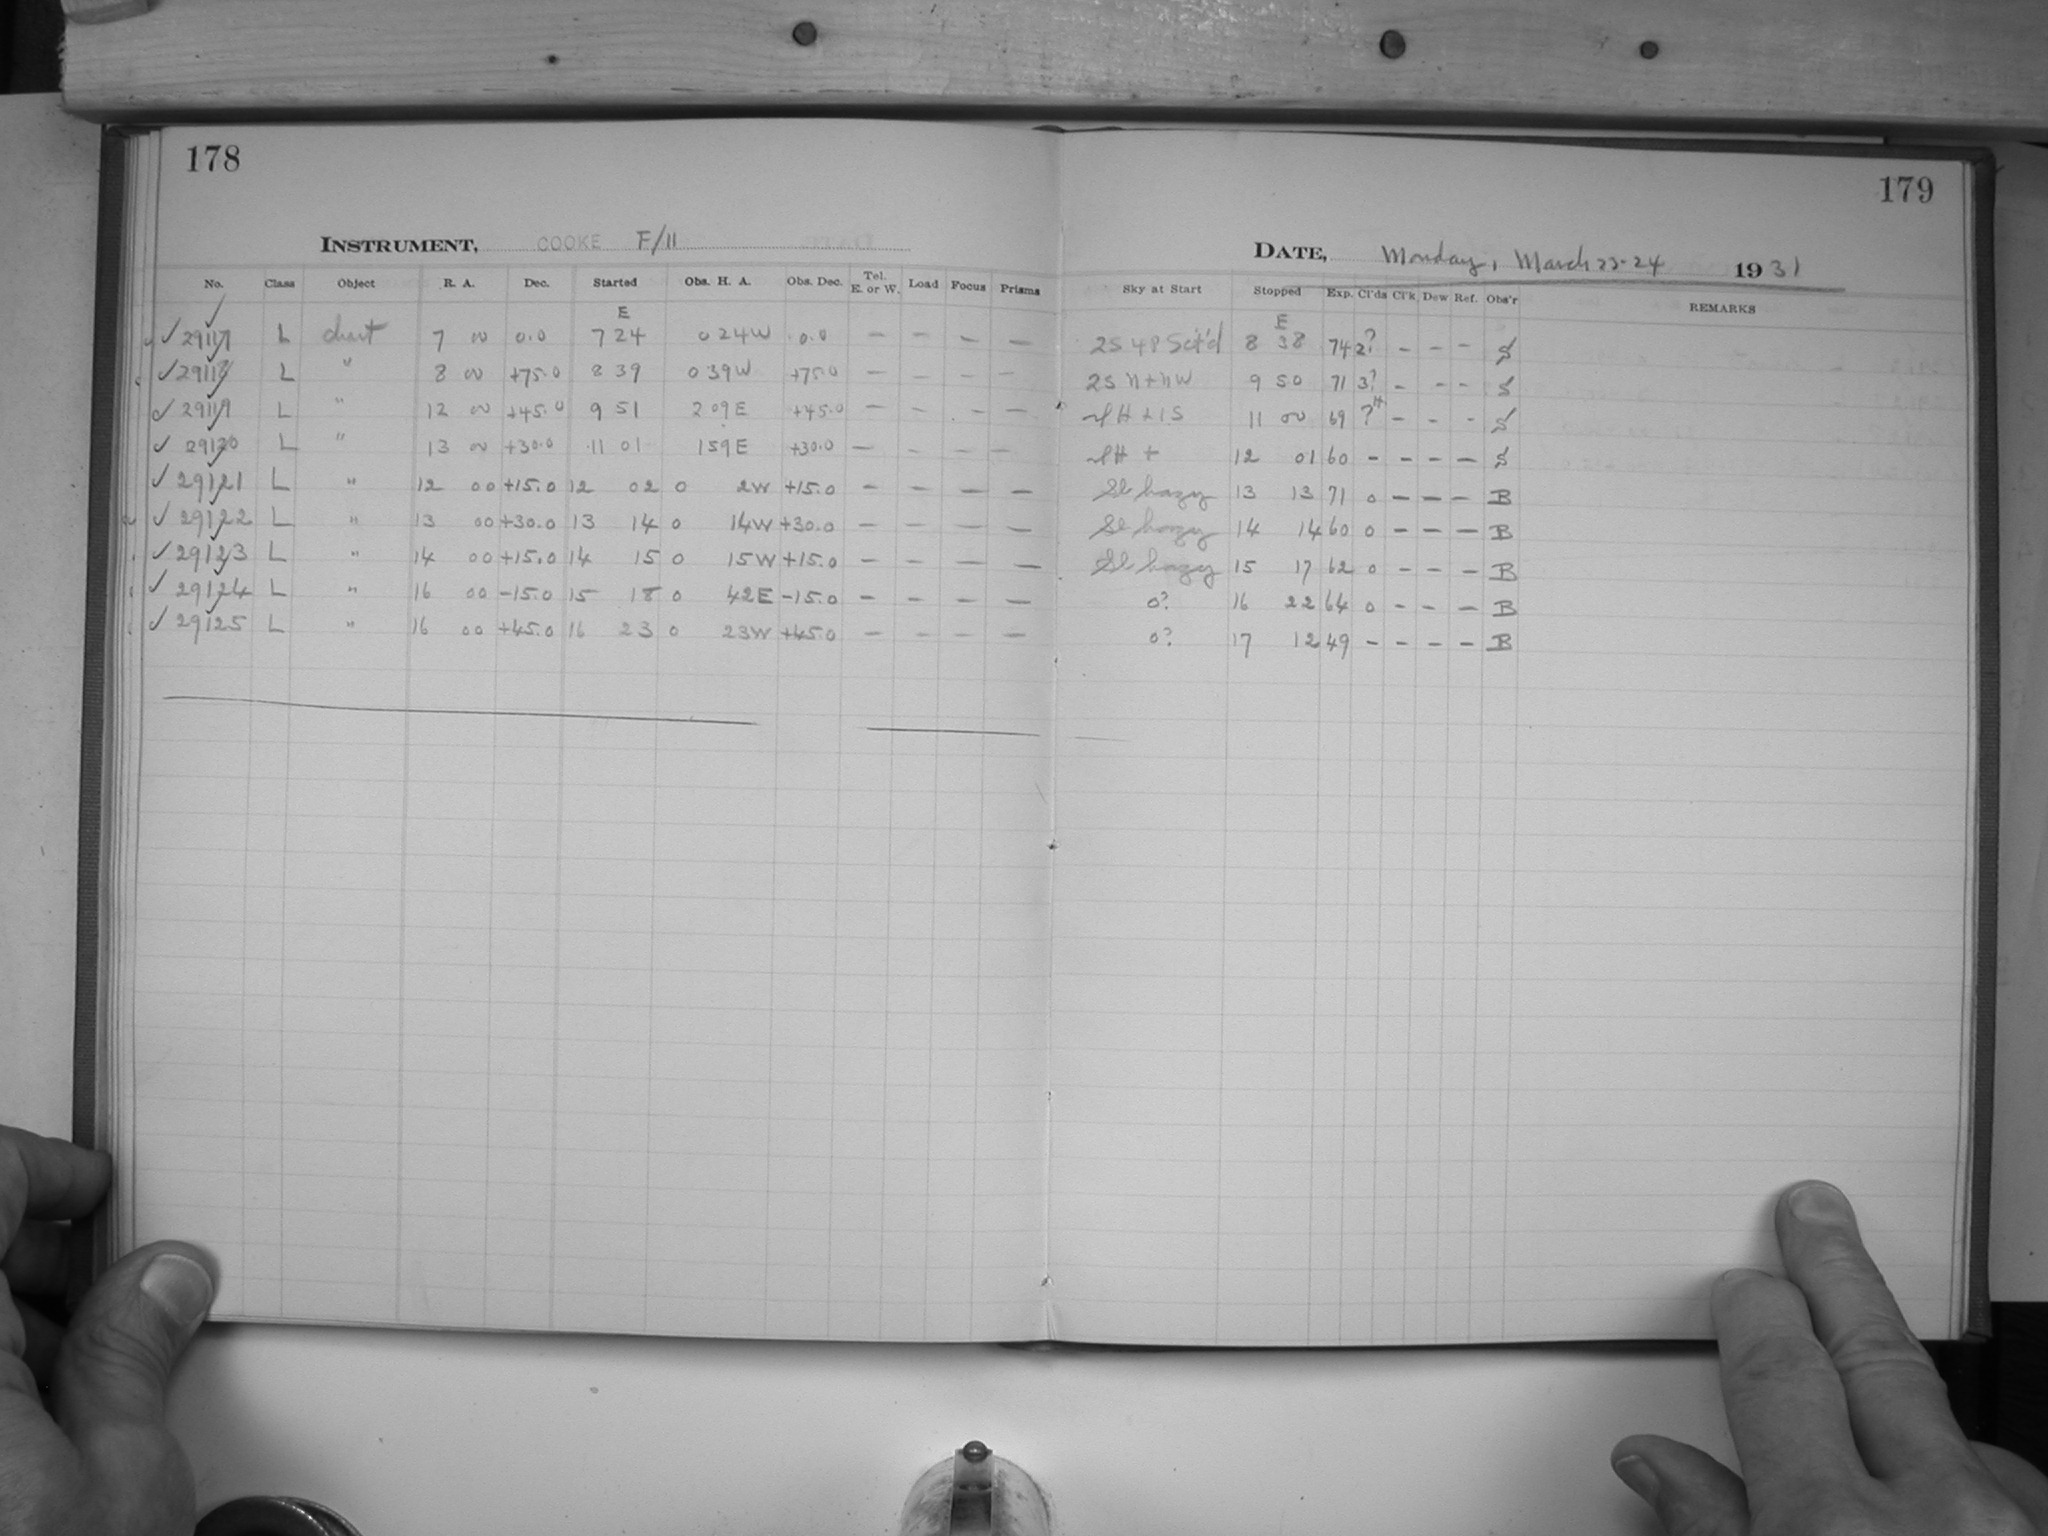 178
179
INSTRUMENT, COOKE F/11
DATE, Monday, March 23-24 1931
No. Class Object R. A. Dec. Started Obs. H. A. Obs. Dec. Tel. E. or W. Load Focus Prisms Sky at Start Stopped Exp. Cl'ds Cl'k Dew Ref. Obs'r REMARKS
E E
✓ 29117 L chart 7 00 0.0 7 24 0 24W 0.0 — — — — 2S 4P Sct'd 8 38 74 2? - - - S
✓ 29118 L " 8 00 +75.0 8 39 0 39W +75.0 — — — — 2S N+NW 9 50 71 3? - - - S
✓ 29119 L " 12 00 +45.0 9 51 2 09E +45.0 — — - — H + 1S 11 00 69 ?H - - - S
✓ 29120 L " 13 00 +30.0 11 01 1 59E +30.0 — - — — H + 12 01 60 - - - — S
✓ 29121 L " 12 00 +15.0 12 02 0 2W +15.0 — — — — Sl hazy 13 13 71 0 — — — B
✓ 29122 L " 13 00 +30.0 13 14 0 14W +30.0 — — — — Sl hazy 14 14 60 0 — — — B
✓ 29123 L " 14 00 +15.0 14 15 0 15W +15.0 — — — — Sl hazy 15 17 62 0 - - — B
✓ 29124 L " 16 00 -15.0 15 18 0 42E -15.0 — — — — 0? 16 22 64 0 - - — B
✓ 29125 L " 16 00 +45.0 16 23 0 23W +45.0 — — — — 0? 17 12 49 - - — — B